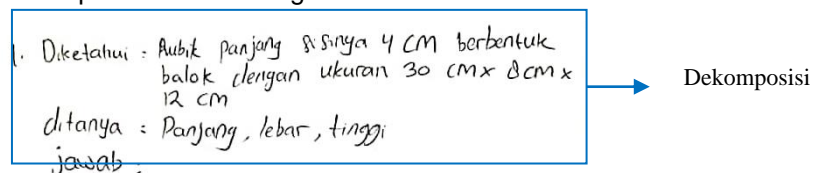 1. Diketahui : Rubik panjang sisinya 4 cm berbentuk
balok dengan ukuran 30 cm x 8 cm x
12 cm
ditanya : Panjang, lebar, tinggi
jawab :
Dekomposisi